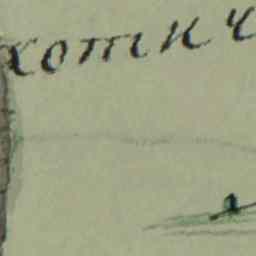 хотич